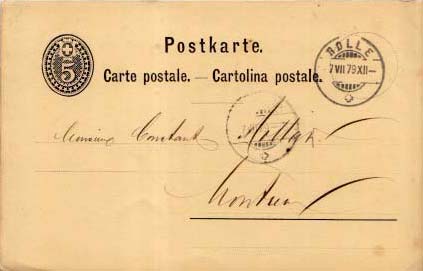 5
Postkarte.
Carte postale. — Cartolina postale.
ROLLE
7 VII 79 XII—
Monsieur Constant
Montreux